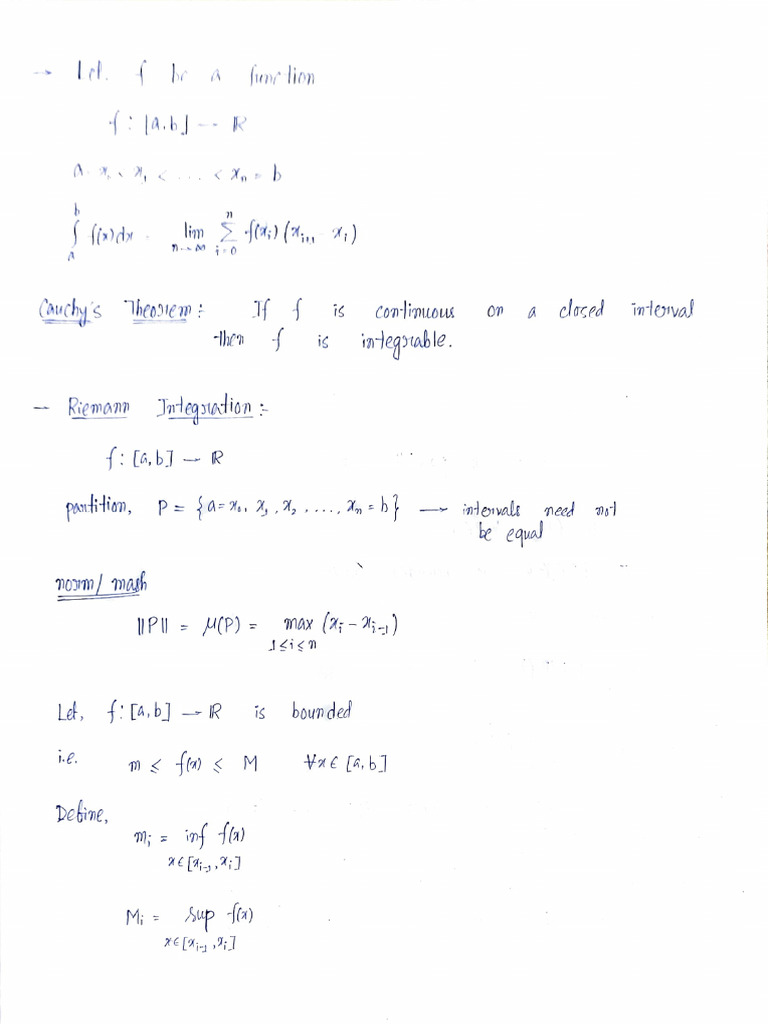 → Let f be a function
f : [a,b] → ℝ
a = x₀ < x₁ < ... < xₙ = b
∫ₐᵇ f(x)dx = lim_{n→∞} ∑_{i=0}^{n} f(xᵢ) (xᵢ₊₁ - xᵢ)
Cauchy's Theorem :- If f is continuous on a closed interval
then f is integrable.
— Riemann Integration :-
f : [a,b] → ℝ
partition, P = {a = x₀, x₁, x₂, ...., xₙ = b} → intervals need not
be equal
norm / mash
||P|| = μ(P) = max_{1≤i≤n} (xᵢ - xᵢ₋₁)
Let, f : [a,b] → ℝ is bounded
i.e. m ≤ f(x) ≤ M ∀x ∈ [a,b]
Define,
mᵢ = inf f(x)
x∈[xᵢ₋₁, xᵢ]
Mᵢ = sup f(x)
x∈[xᵢ₋₁, xᵢ]